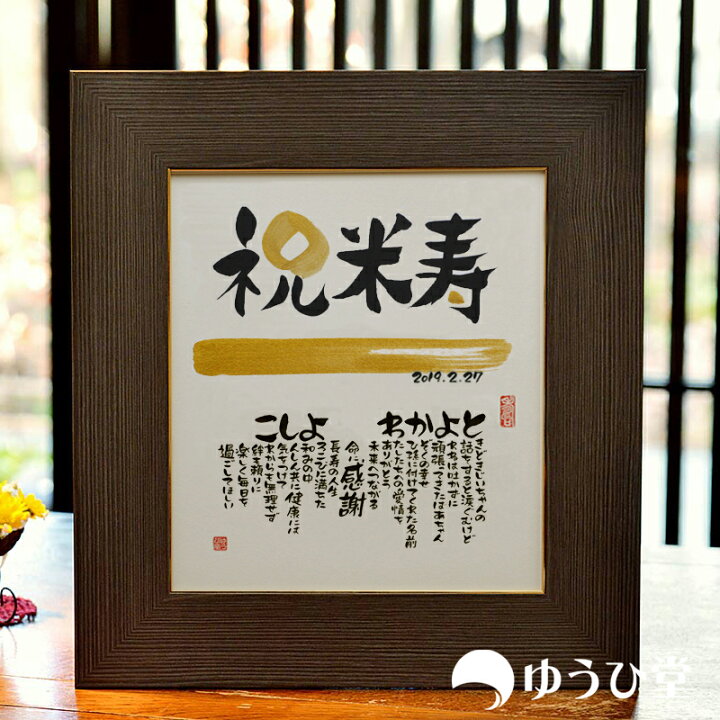 祝米寿
2019.2.27
ときどきじいちゃんの
話をすると涙ぐむけど
よわ音は吐かずに
頑張ってきたばあちゃん
かぞくの幸せ
ひ孫に付けてくれた名前
わたしたちへの愛情を
ありがとう
未来へつながる
命に感謝
長寿の人生
よろこびに満ちた
和みの中
しんしん共に健康には
気をつけて
これからも無理せず
絆を頼りに
楽しく毎日を
過ごしてほしい
ゆうひ堂